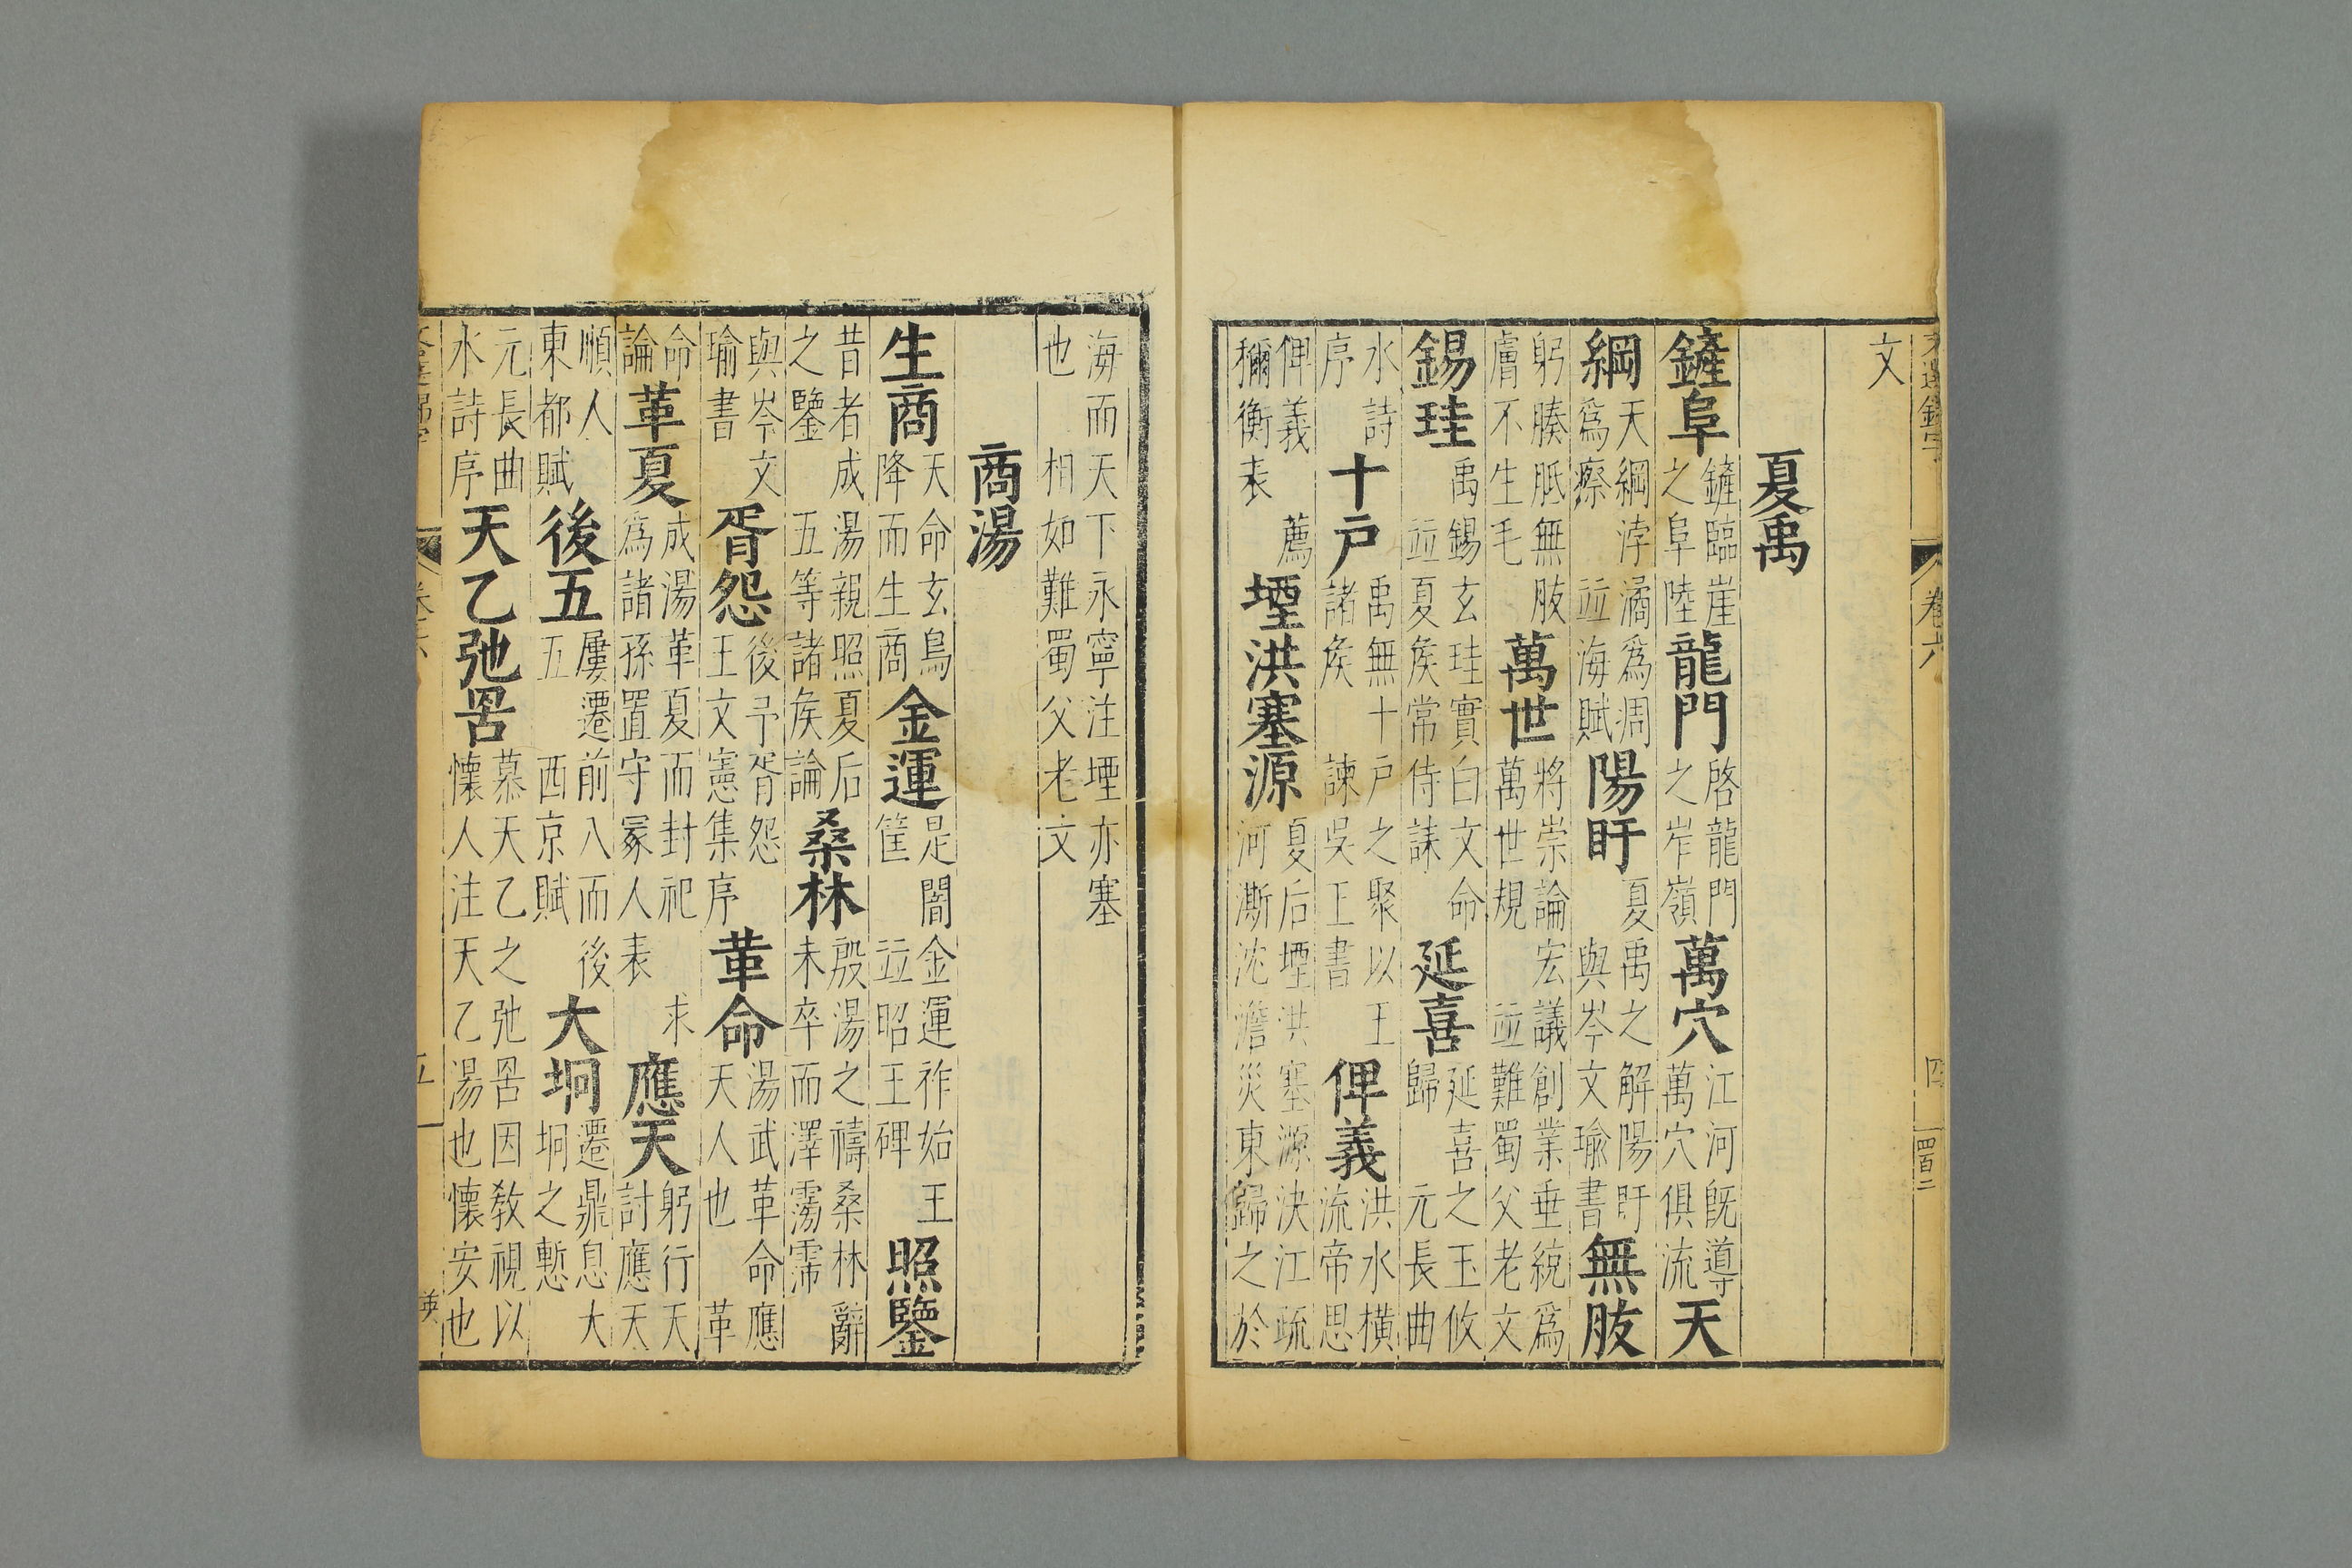 文選錦字 卷六 四 四百二
文
夏禹
鏟阜 鏟臨崖之阜陸 龍門 啓龍門之岝嶺 萬穴 江河旣導萬穴俱流 天
綱 天綱浡潏爲凋爲瘵 並海賦 陽盱 夏禹之解陽盱 與岑文瑜書 無胈
躬腠胝無胈膚不生毛 萬世 將崇論宏議創業垂統爲萬世規 並難蜀父老文
錫珪 禹錫玄珪實白文命 並夏侯常侍誄 延喜 延喜之玉攸歸 元長曲
水詩序 十戶 禹無十戶之聚以王諸侯 諫吳王書 俾義 洪水橫流帝思
俾義 薦禰衡表 堙洪塞源 夏后堙洪塞源決江疏河澌沈澹災東歸之於
海而天下永寧注堙亦塞也 相如難蜀父老文
商湯
生商 天命玄鳥降而生商 金運 是闇金運祚始王筐 並昭王碑 照鑒
昔者成湯親照夏后之鑒 五等諸侯論 桑林 殷湯之禱桑林辭未卒而澤霶霈
與岑文瑜書 胥怨 後予胥怨 王文憲集序 革命 湯武革命應天人也 革
命論 革夏 成湯革夏而封祀 求爲諸孫置守冢人表 應天 躬行天討應天
順人 東都賦 後五 屢遷前八而後五 西京賦 大坰 遷鼎息大坰之慙
元長曲水詩序 天乙弛罟 慕天乙之弛罟因教視以懷人注天乙湯也懷安也
卷六 五 英